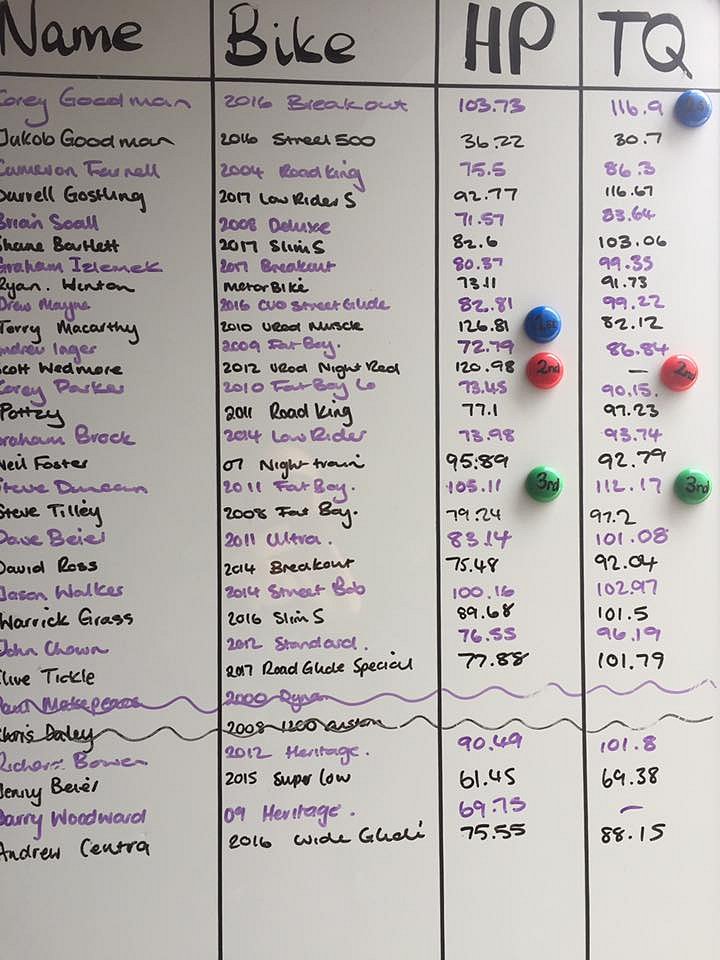 Name Bike HP TQ
Corey Goodman 2016 Breakout 103.73 116.9
Jakob Goodman 2016 Street 500 36.22 30.7
Cameron Farnell 2004 Road King 75.5 86.3
Darrell Gostling 2017 Low Rider S 92.77 116.67
Brian Soall 2008 Deluxe 71.57 83.64
Shane Bartlett 2017 Slim S 82.6 103.06
Graham Izlemek 2017 Breakout 80.37 99.35
Ryan. Winton MotorBike 73.11 91.73
Drew Mayne 2016 CVO Street Glide 82.81 99.22
Terry Macarthy 2010 VRod Muscle 126.81 1st 82.12
Andrew Inger 2009 Fat Boy. 72.79 86.84
Scott Wedmore 2012 VRod Night Rod 120.98 2nd — 2nd
Corey Parker 2010 Fat Boy Lo 73.45 90.15.
Pottzy 2011 Road King 77.1 97.23
Graham Brock 2014 Low Rider 73.98 93.74
Neil Foster 07 Night train 95.89 92.79
Steve Duncan 2011 Fat Boy. 105.11 3rd 112.17 3rd
Steve Tilley 2008 Fat Boy. 79.24 97.2
Dave Beier 2011 Ultra. 83.14 101.08
David Ross 2014 Breakout 75.48 92.04
Jason Walker 2014 Street Bob 100.16 102.97
Warrick Grass 2016 Slim S 89.68 101.5
John Chown 2012 Standard. 76.55 96.19
Clive Tickle 2017 Road Glide Special 77.88 101.79
Paul Makepeace 2000 Dyna
Chris Daley 2008 1200 Custom
Richard Bowen 2012 Heritage. 90.49 101.8
Jenny Beier 2015 Super Low 61.45 69.38
Barry Woodward 09 Heritage. 69.75 —
Andrew Centra 2016 Wide Glide 75.55 88.15